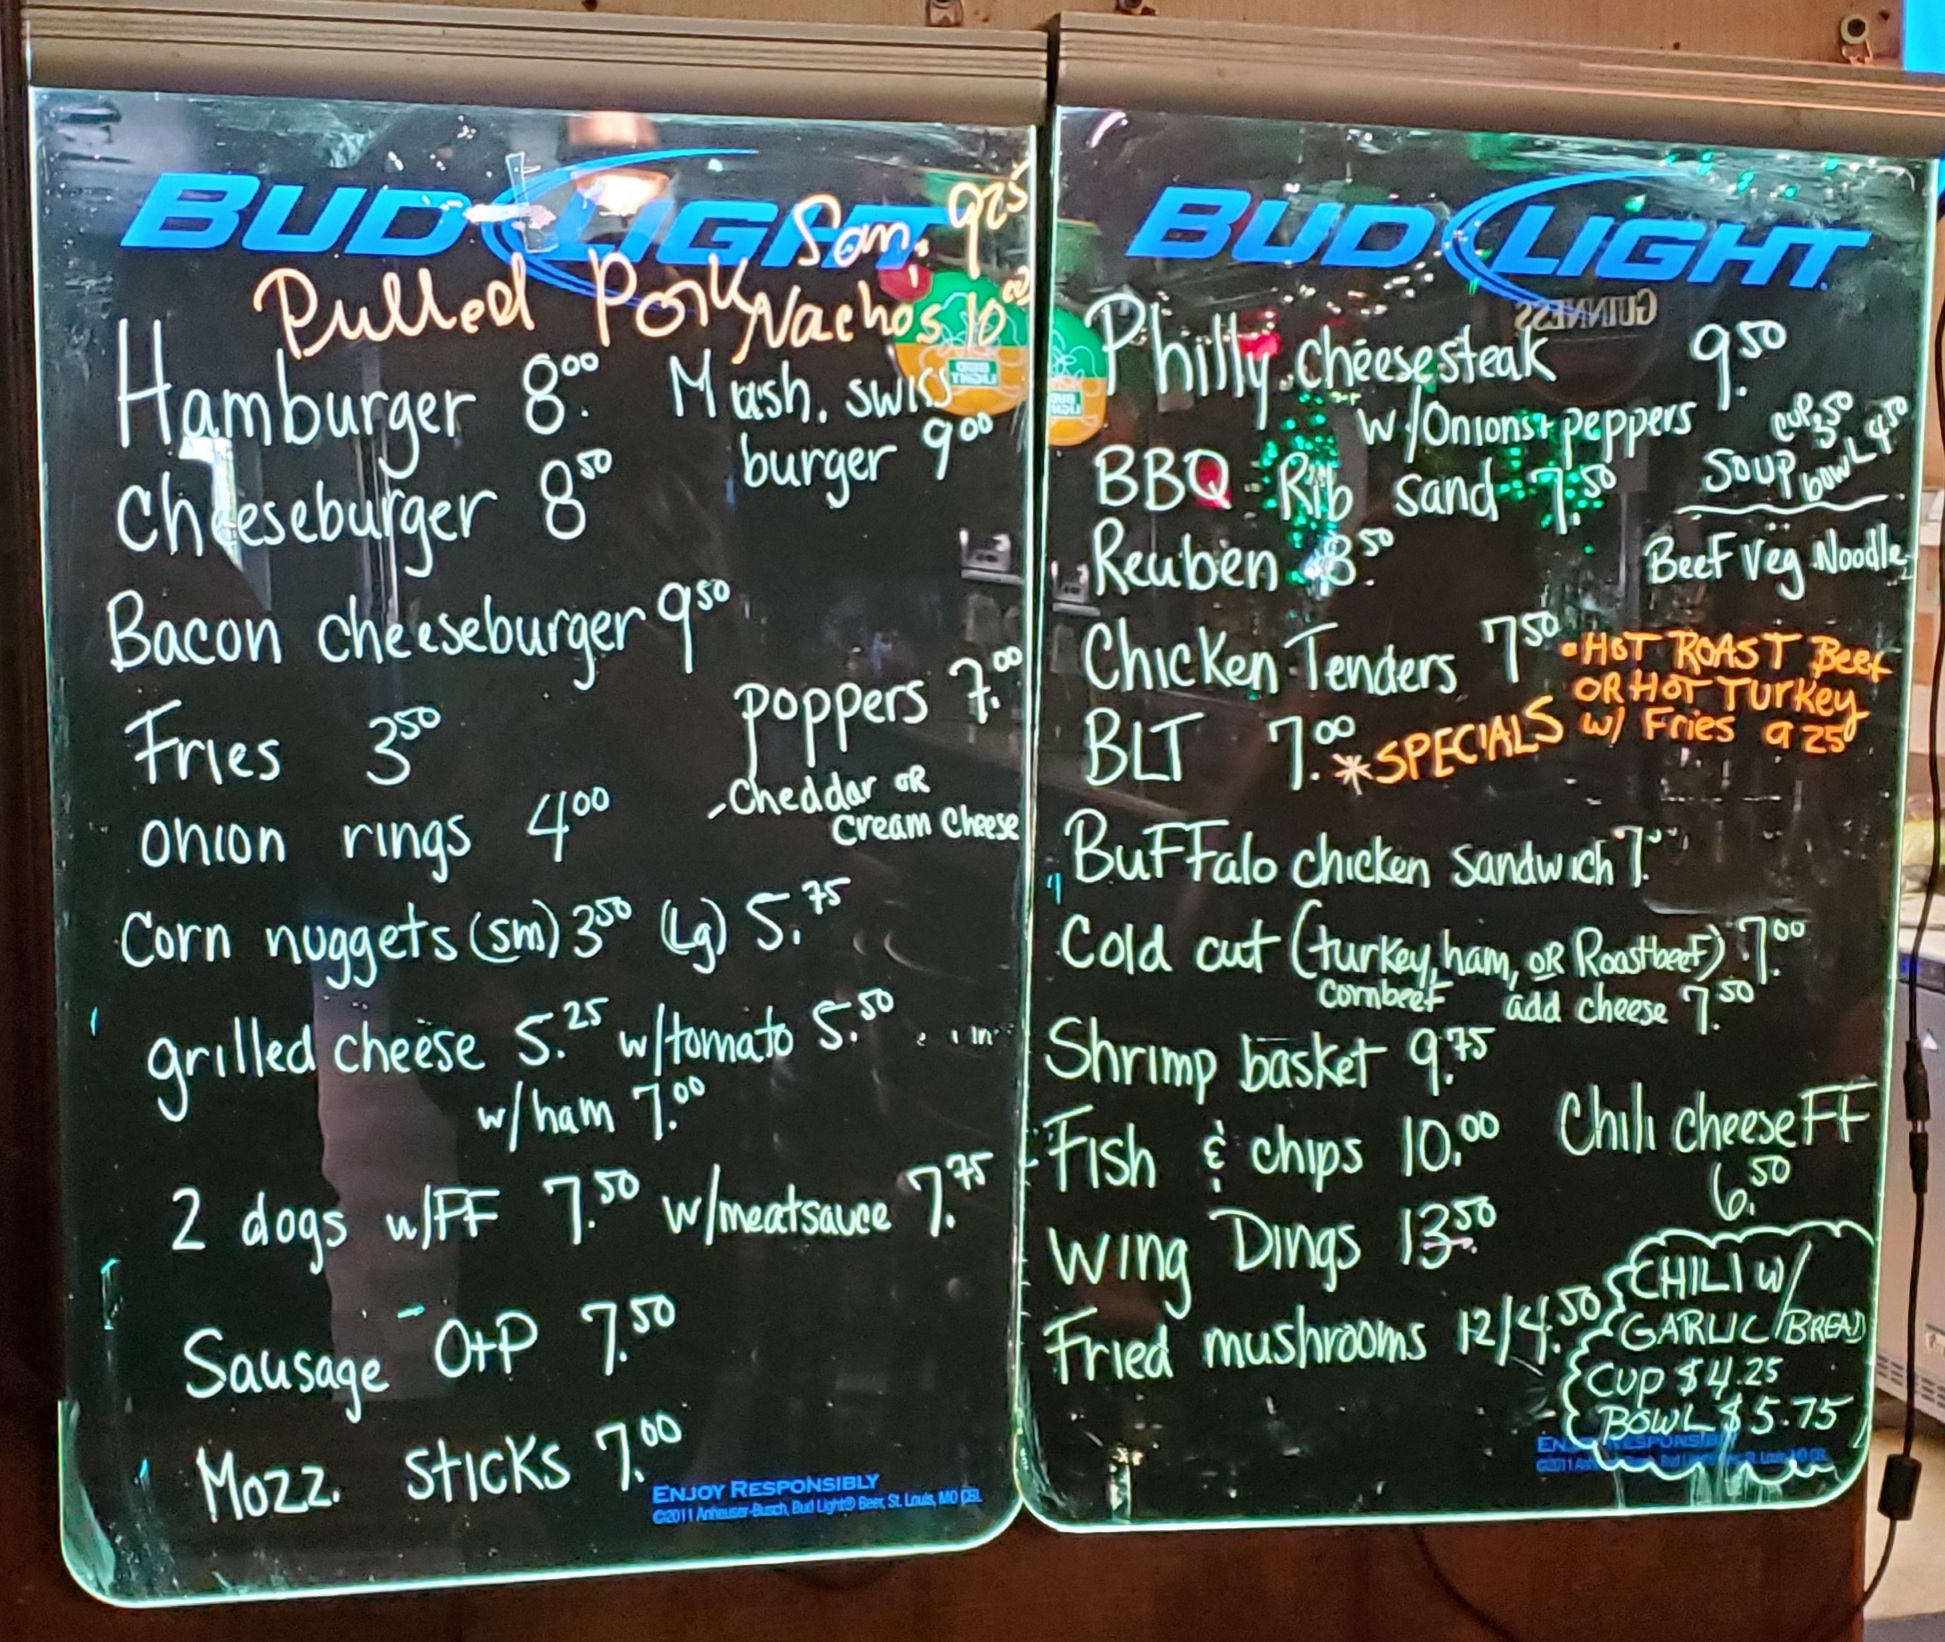 BUD LIGHT
San. 9.25
Pulled Pork Nachos 10
Hamburger 8.00 Mush. swiss
burger 9.00
Cheeseburger 8.50
Bacon cheeseburger 9.50
Fries 3.50
poppers 7.00
-Cheddar OR
Cream Cheese
onion rings 4.00
Corn nuggets (sm) 3.50 (Lg) 5.75
grilled cheese 5.25 w/tomato 5.50
w/ham 7.00
2 dogs w/FF 7.50 w/meatsauce 7.75
Sausage O+P 7.50
Mozz. sticks 7.00
ENJOY RESPONSIBLY
©2011 Anheuser-Busch, Bud Light® Beer, St. Louis, MO
BUD LIGHT
GUINNESS
Philly cheesesteak 9.50
w/Onions+peppers
BBQ Rib sand 7.50
Soup cup
bowl 4.50
Reuben 8.50
Beef Veg Noodle
Chicken Tenders 7.50
BLT 7.00
*SPECIALS
•HOT ROAST Beef
OR HOT Turkey
w/ Fries 9 25
Buffalo chicken sandwich 7.
Cold cut (turkey, ham, OR Roastbeef) 7.00
Cornbeef add cheese 7.50
Shrimp basket 9.75
Fish & chips 10.00
Chili cheese FF
6.50
Wing Dings 13.50
Fried mushrooms 12/4.50
CHILI w/
GARLIC BREAD
CUP $4.25
BOWL $5.75